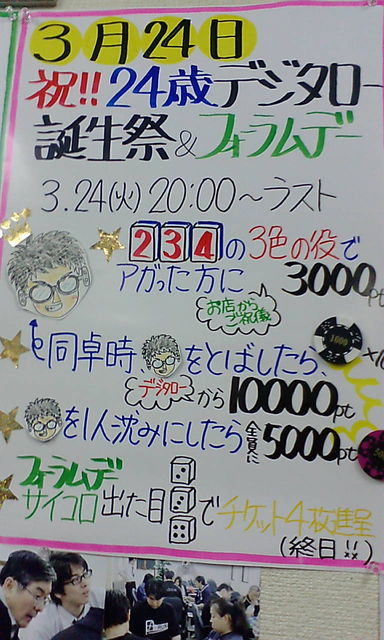 3月24日
祝!!24歳デジタロー
誕生祭&フォーラムデー
3.24(火)20:00〜ラスト
234の3色の役で
アガった方に 3000pt
お店から
ご祝儀
同卓時、をとばしたら、
1000
×10
デジタローから10000pt
を1人沈みにしたら全員に5000pt
フォーラムデー
サイコロ出た目でチケット4枚進呈
(終日!!)